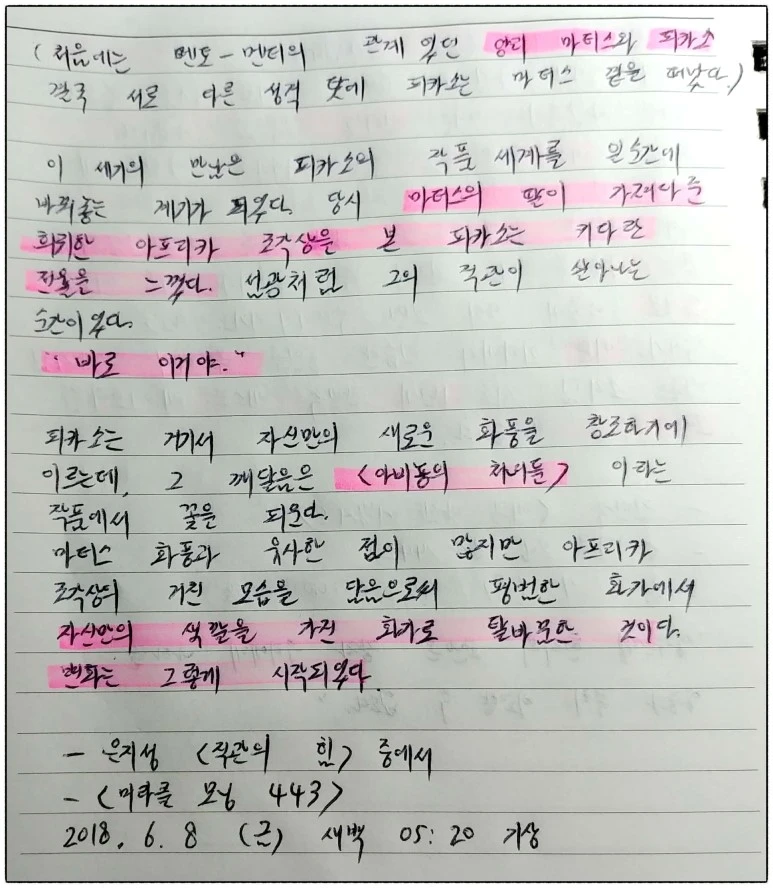 (처음에는 멘토-멘티의 관계였던 앙리 마티스와 피카소
결국 서로 다른 성격 탓에 피카소는 마티스 곁을 떠났다.)
이 세기의 만남은 피카소의 작품 세계를 일순간에
바꿔놓는 계기가 되었다. 당시 마티스의 딸이 가져다 준
희귀한 아프리카 조각상을 본 피카소는 커다란
전율을 느꼈다. 섬광처럼 그의 직관이 살아나는
순간이었다.
"바로 이거야."
피카소는 거기서 자신만의 새로운 화풍을 창조하기에
이르는데, 그 깨달음은 <아비뇽의 처녀들> 이라는
작품에서 꽃을 피운다.
마티스 화풍과 유사한 점이 많지만 아프리카
조각상의 거친 모습을 닮음으로써 평범한 화가에서
자신만의 색깔을 가진 화가로 탈바꿈한 것이다.
변화는 그렇게 시작되었다.
- 은지성 <직관의 힘> 중에서
- <미라클 모닝 443>
2018. 6. 8 (금) 새벽 05:20 기상